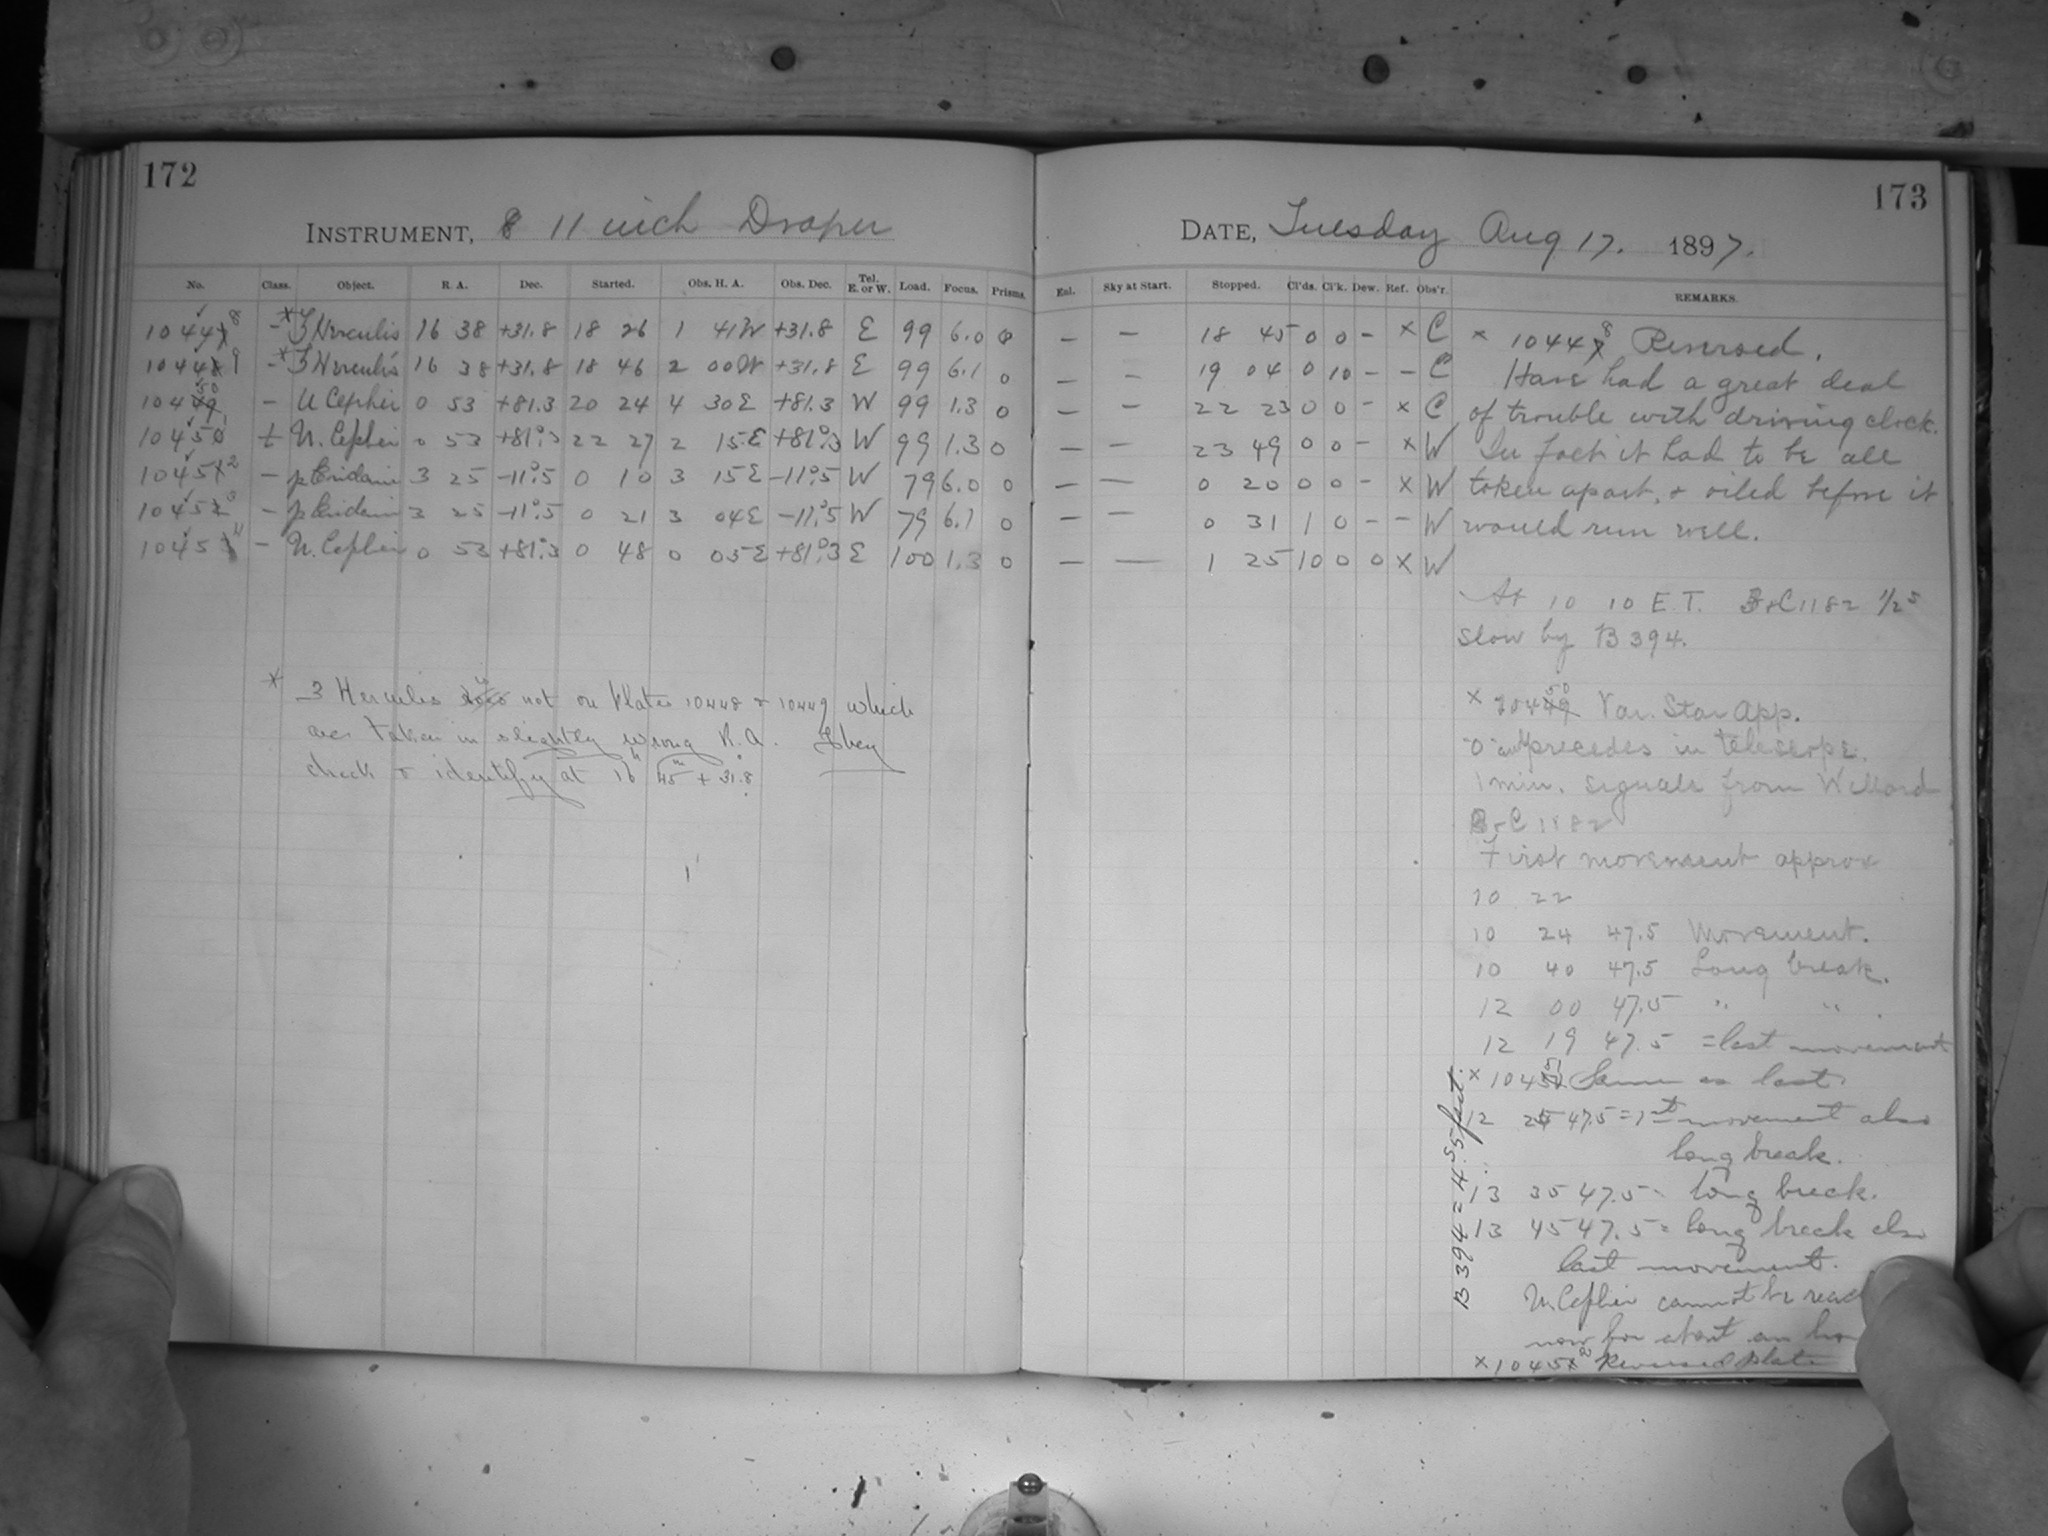 172
INSTRUMENT, 8 11 inch Draper
No. Class. Object. R. A. Dec. Started. Obs. H. A. Obs. Dec. Tel. E. or W. Load. Focus. Prisms.
10448 - Herculis 16 38 +31.8 18 26 1 41W +31.8 E 99 6.0 0
10449 - Herculis 16 38 +31.8 18 46 2 00W +31.8 E 99 6.1 0
10450 - U Cephei 0 53 +81.3 20 24 4 30E +81.3 W 99 1.3 0
10451 U. Cephei 0 53 +81°.3 22 27 2 15E +81°.3 W 99 1.3 0
10452 - Eridani 3 25 -11°.5 0 10 3 15E -11°.5 W 79 6.0 0
10453 - Eridani 3 25 -11°.5 0 21 3 04E -11°.5 W 79 6.1 0
10454 - U. Cephei 0 53 +81°.3 0 48 0 05E +81°.3 E 100 1.3 0
* Herculis not on Plates 10448 & 10449 which
are taken in slightly wrong R.A. They
check & identify at 16h 45m + 31°.8
173
DATE, Tuesday Aug 17. 1897.
Enl. Sky at Start. Stopped. Cl'ds. Cl'k. Dew. Ref. Obs'r. REMARKS.
— — 18 45 0 0 - × C
— — 19 04 0 10 - - C
— — 22 23 0 0 - × C
— — 23 49 0 0 - × W
— — 0 20 0 0 - × W
— — 0 31 1 0 - - W
— — 1 25 10 0 0 × W
× 10448 Reversed.
Have had a great deal
of trouble with driving clock.
In fact it had to be all
taken apart, & oiled before it
would run well.
At 10 10 E.T. B&C 1182 1/2 s
slow by B 394.
× 10450 Var. Star App.
precedes in telescope.
1 min. signals from Willard
B&C 1182
First movement approx
10 22
10 24 47.5 Movement.
10 40 47.5 Long break.
12 00 47.5 " " .
12 19 47.5 = last movement
× 10451 Same as last.
12 25 47.5 = 1st movement also
long break.
13 35 47.5 = long break.
13 45 47.5 = long break also
last movement.
U. Cephei cannot be
now for about an
× 10452 Reversed plate
B 394 = 4.55 fast.